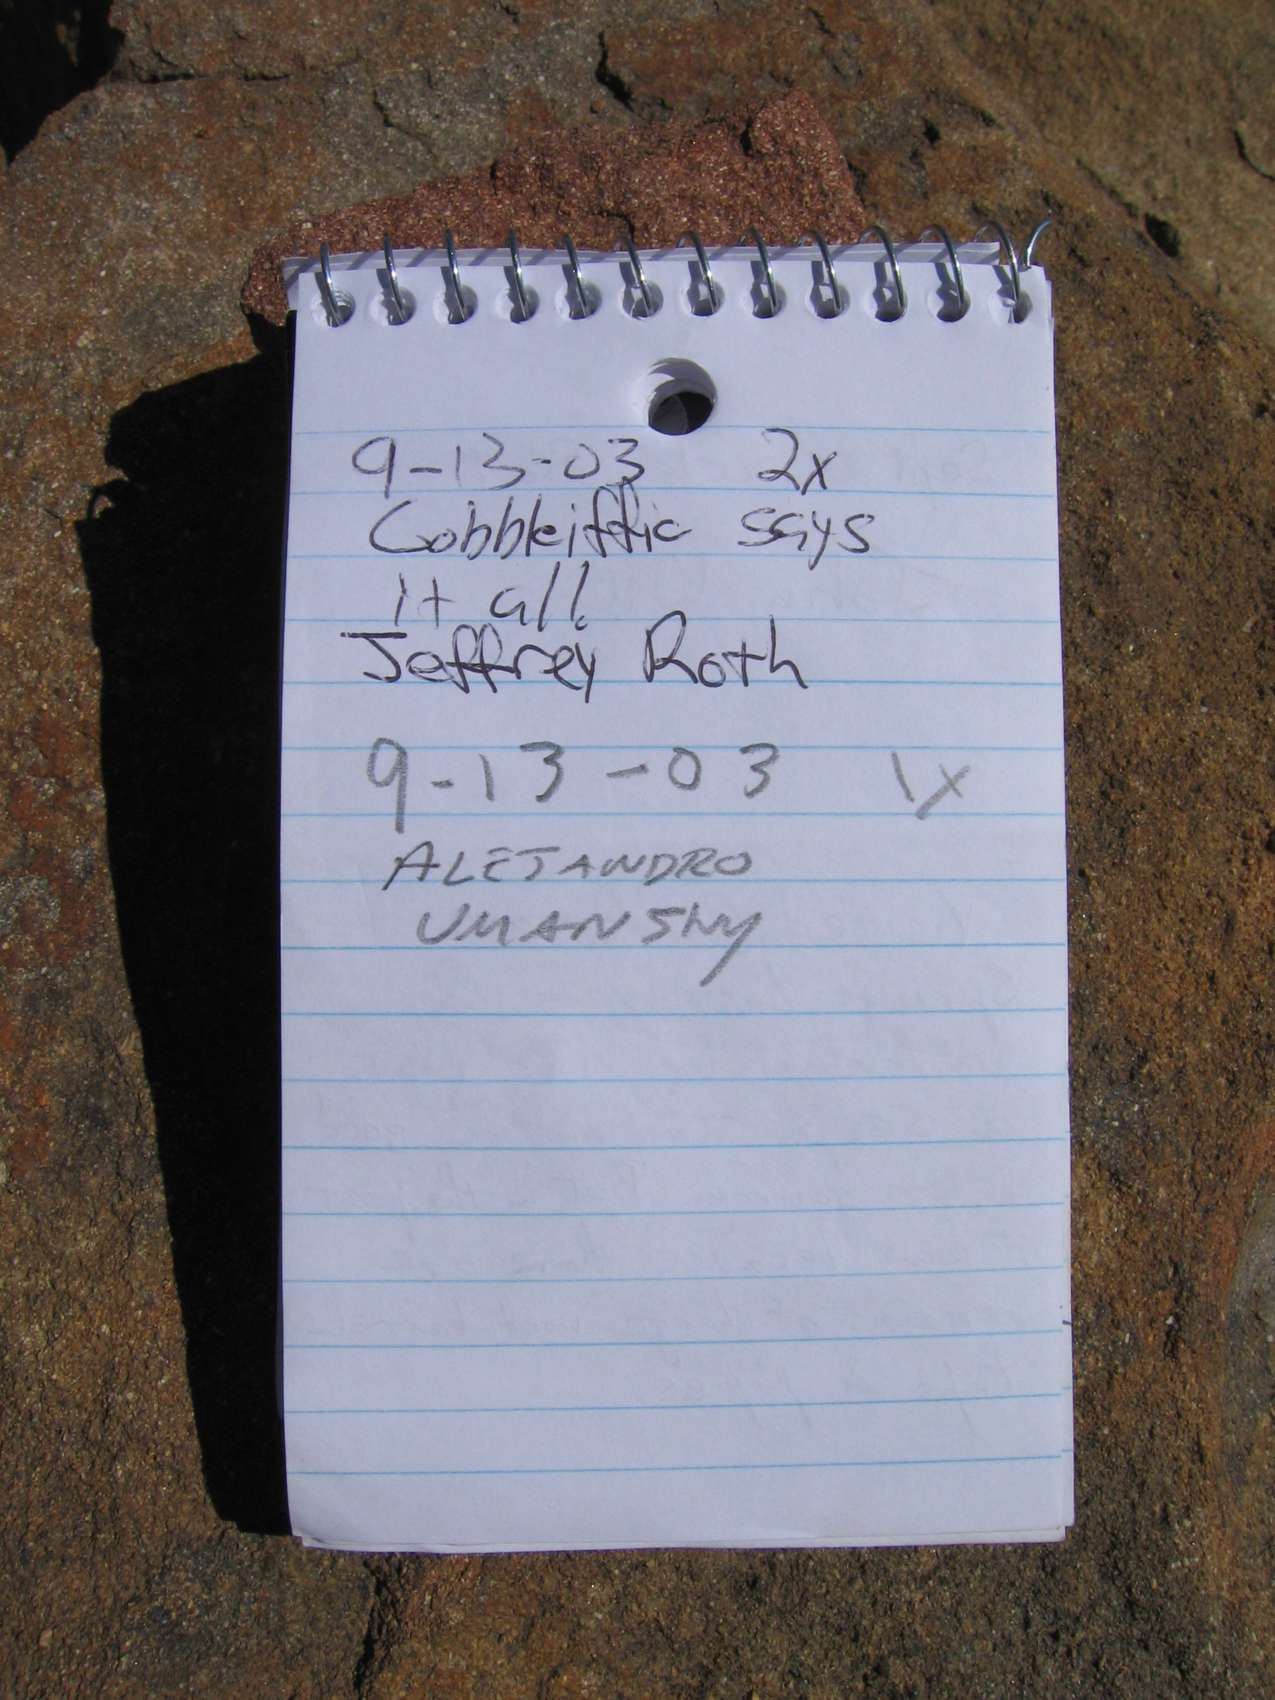 9-13-03 2x
Cobbleiffic says
it all.
Jeffrey Roth
9-13-03 1x
ALEJANDRO
UMANSky